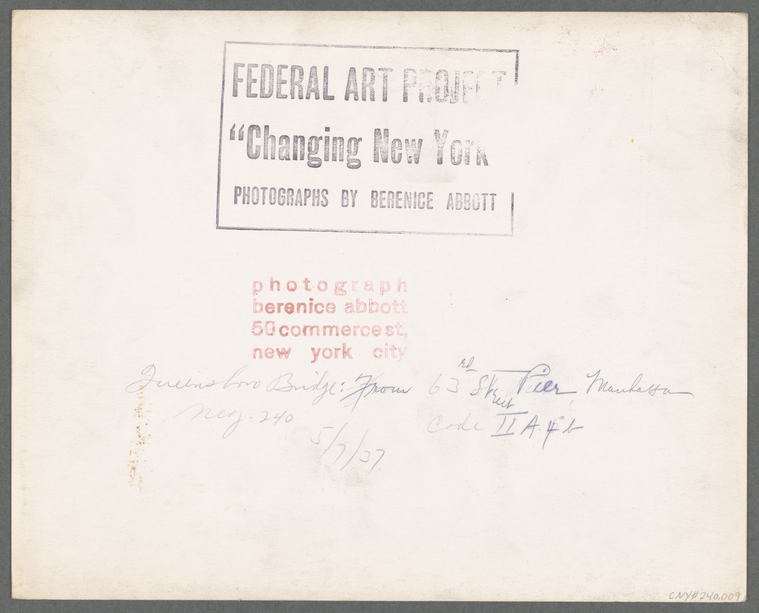 FEDERAL ART PROJECT
"Changing New York
PHOTOGRAPHS BY BERENICE ABBOTT
photograph
berenice abbott
50 commerce st,
new york city
Queensboro Bridge: From 63rd Street Pier, Manhattan
Neg. 240 Code II A 4 b
5/7/37.
CNY#240.009